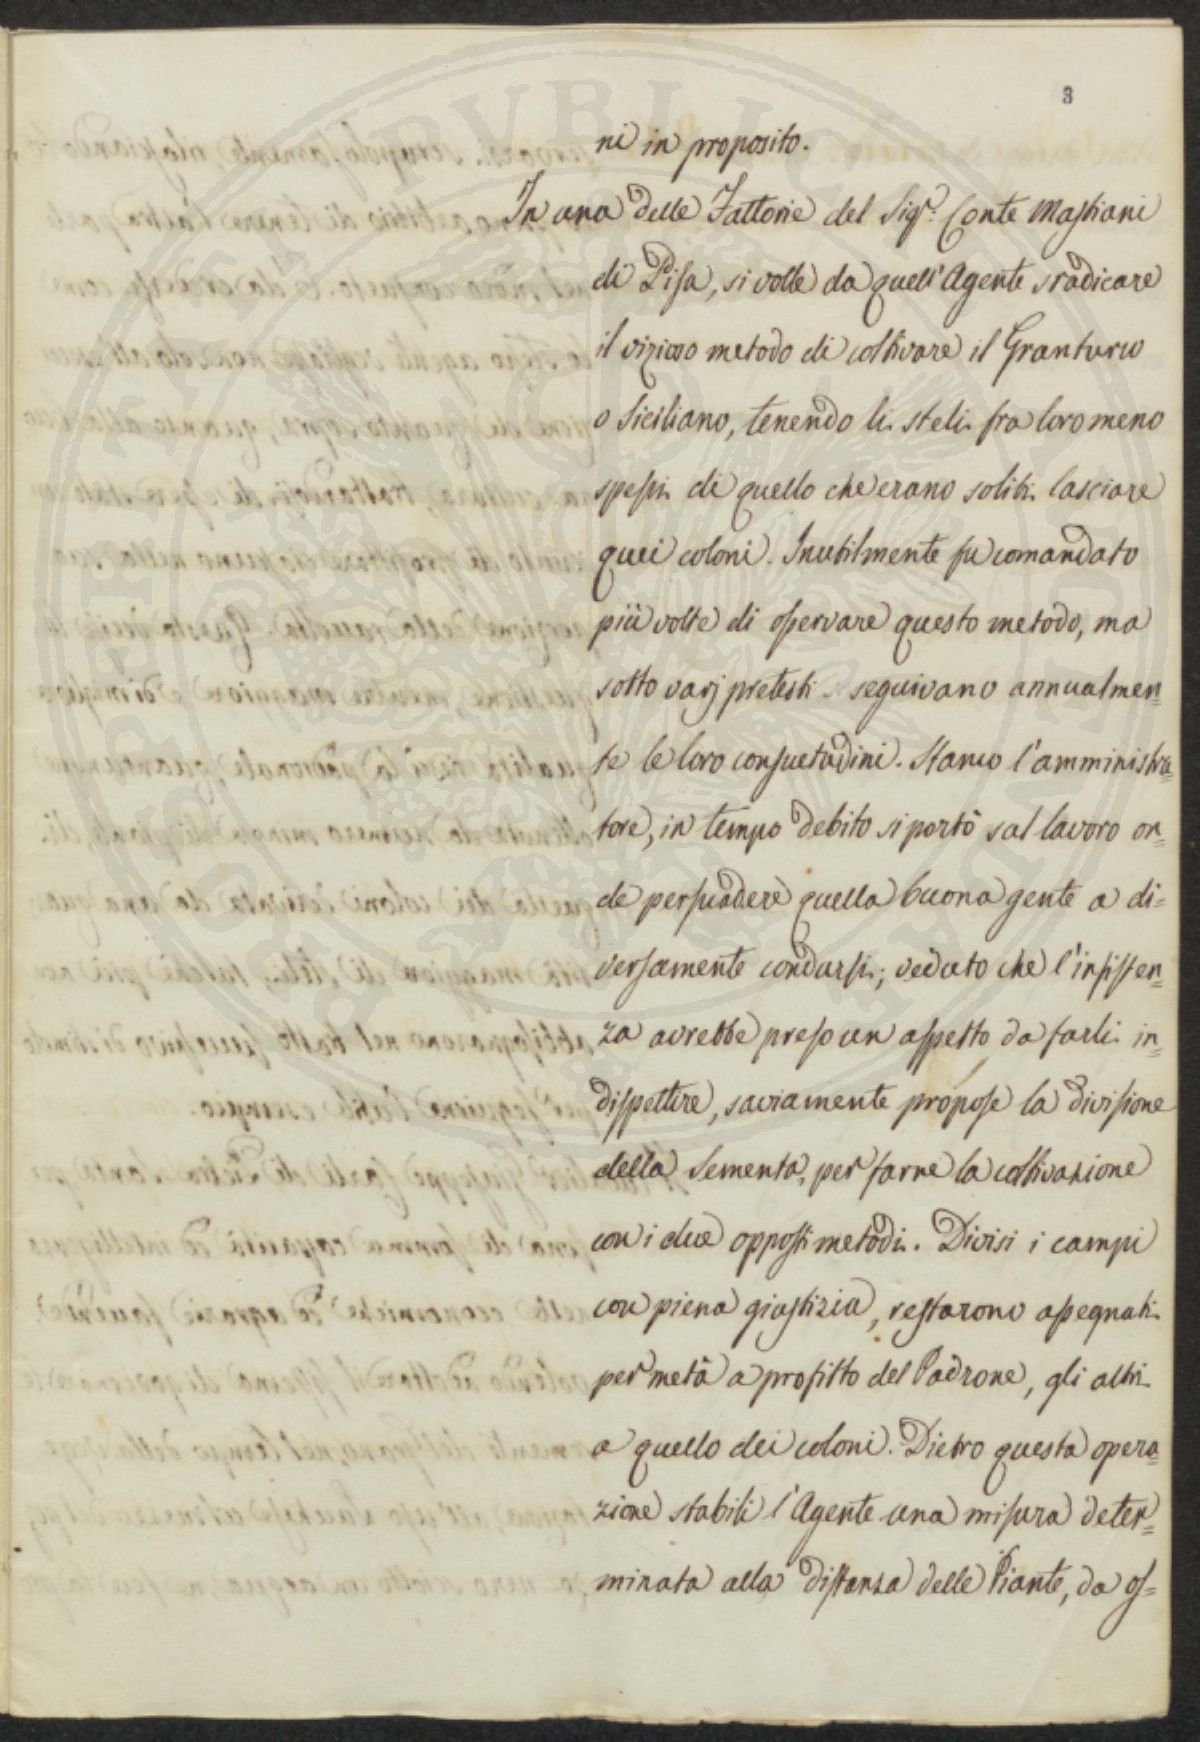 3
ni in proposito.
In una delle Fattorie del Sigr. Conte Mastiani
di Pisa, si volle da quell'Agente sradicare
il vizioso metodo di coltivare il Granturco
o Siciliano, tenendo li steli fra loro meno
spessi di quello che erano soliti lasciare
quei coloni. Inutilmente fu comandato
più volte di osservare questo metodo, ma
sotto varj pretesti seguivano annualmen=
te le loro consuetudini. Stanco l'amministra=
tore, in tempo debito si portò sul lavoro on=
de persuadere quella buona gente a di=
versamente condursi; veduto che l'insisten=
za avrebbe preso un aspetto da farli in=
dispettire, saviamente propose la divisione
della Sementa, per farne la coltivazione
con i due opposti metodi. Divisi i campi
con piena giustizia, restarono assegnati
per metà a profitto del Padrone, gli altri
a quello dei coloni. Dietro questa opera=
zione stabilì l'Agente una misura deter=
minata alla distanza delle Piante, da os=